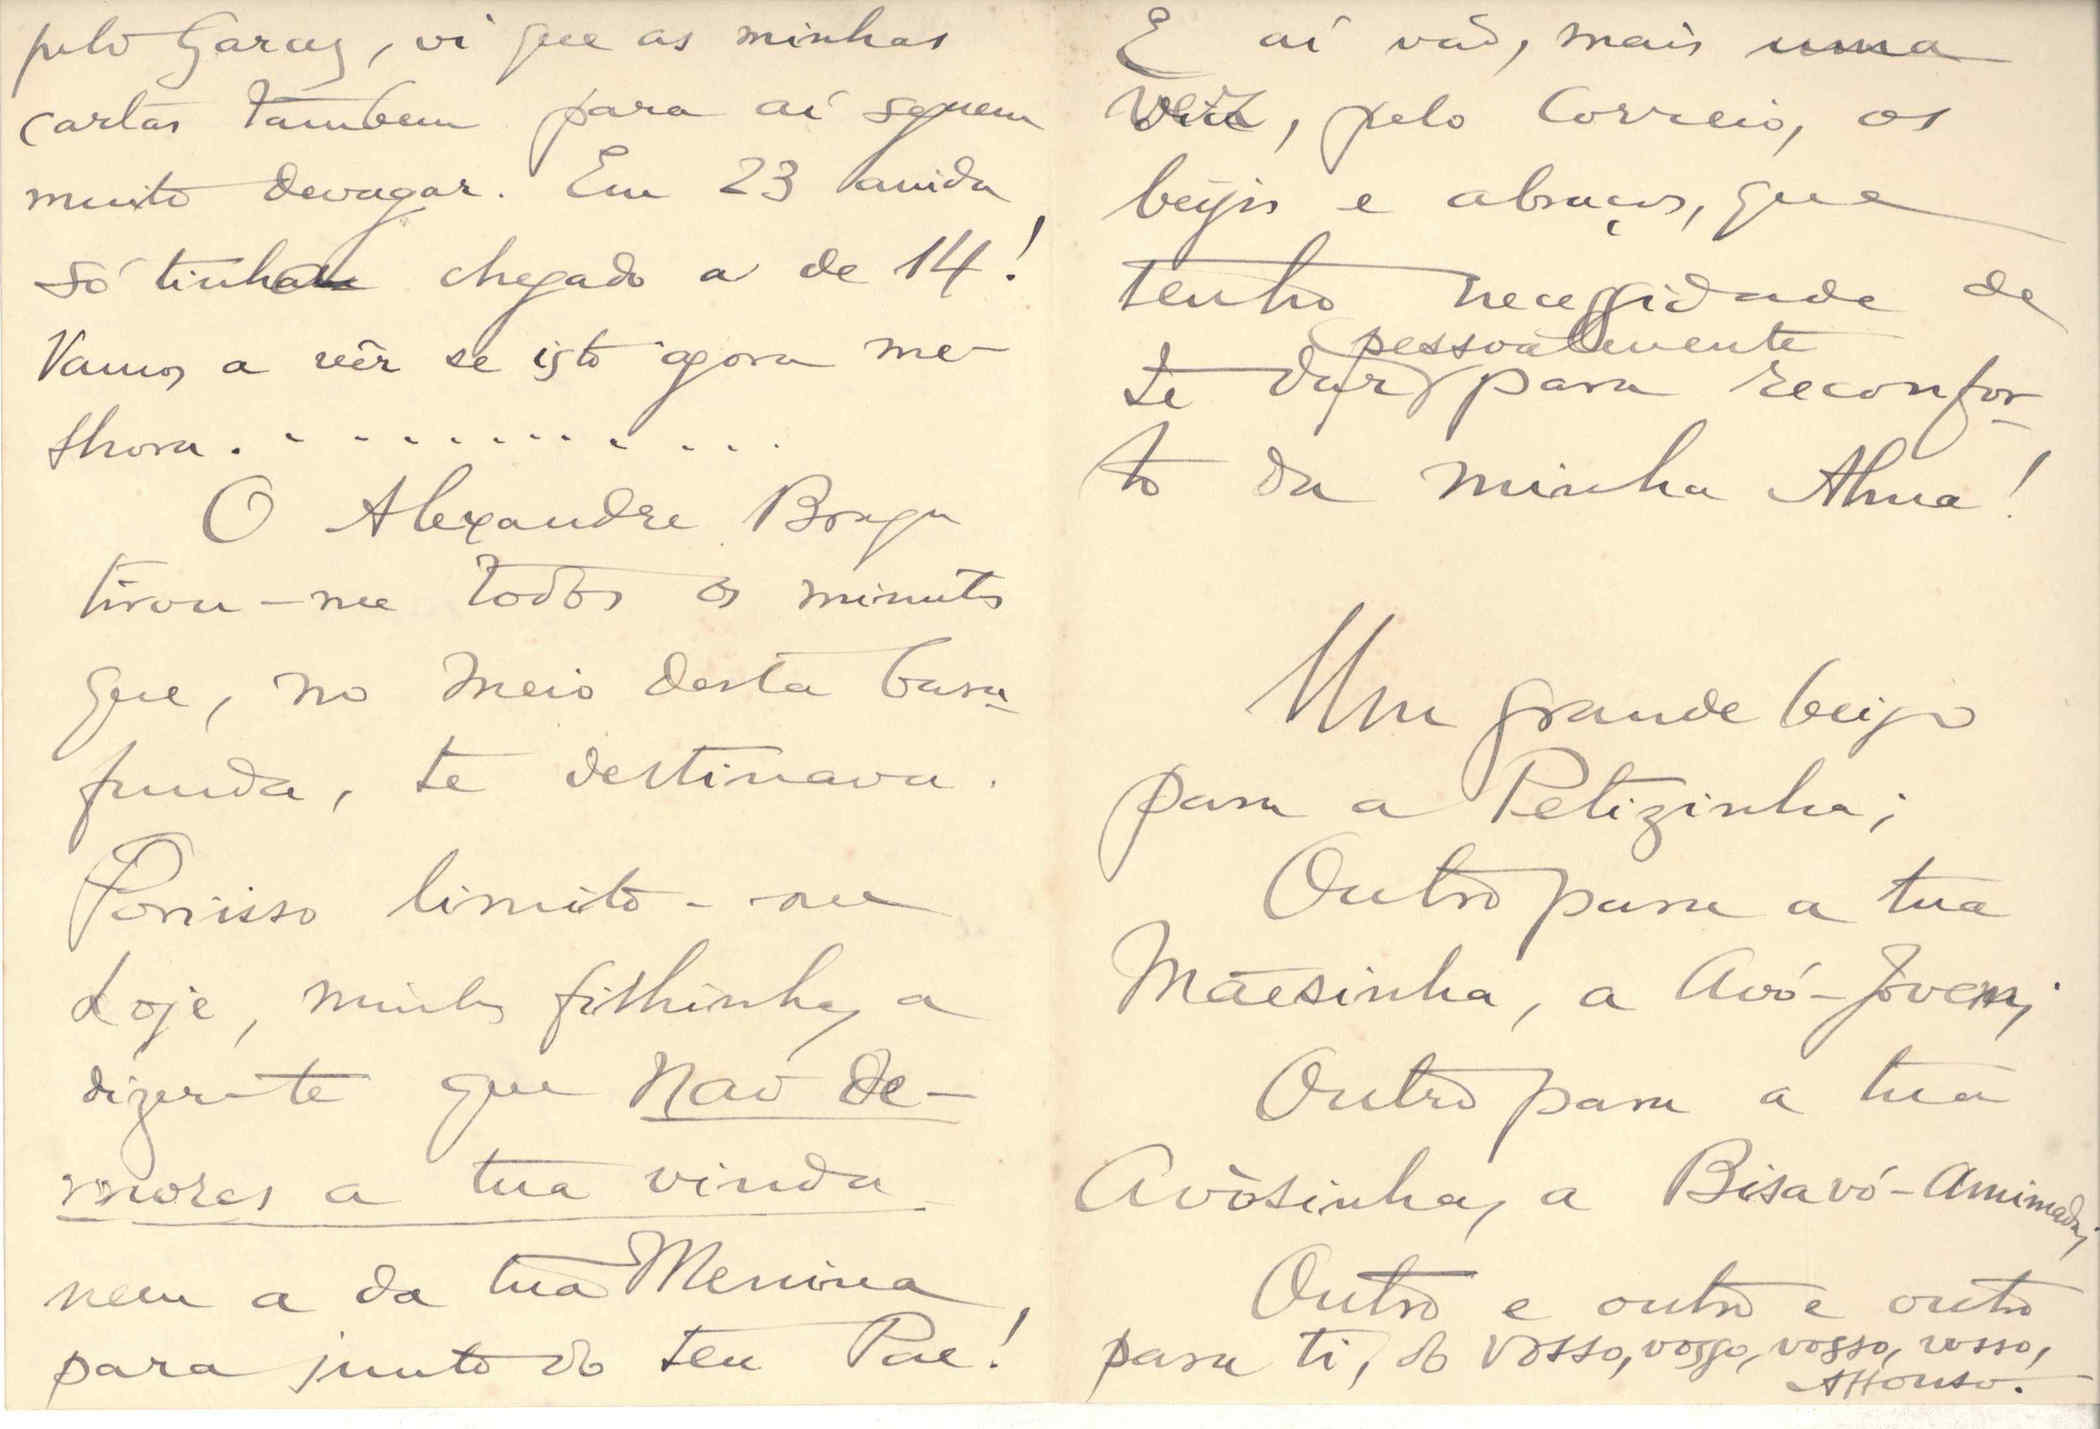 pelo Garcez, vi que as minhas
cartas tambem para aí seguem
muito devagar. Em 23 ainda
só tinha chegado a de 14!
Vamos a vêr se isto agora me-
lhora. . . . . . . . . . . . .
O Alexandre Braga
tirou-me todos os minutos
que, no meio desta bara-
funda, te destinava.
Porisso limito-me
hoje, minha filhinha, a
dizer-te que não de-
mores a tua vinda
nem a da tua Menina
para junto do teu Pae!
E aí vão, mais uma
vez, pelo Correio, os
beijos e abraços, que
tenho necessidade de
pessoalmente
te dar para reconfor-
to da minha Alma!
Um grande beijo
para a Petizinha;
Outro para a tua
Mãesinha, a Avó-Jovem;
Outro para a tua
Avòsinha, a Bisavó-Amimada;
Outro e outro e outro
para ti, do vosso, vosso, vosso, vosso,
Affonso.